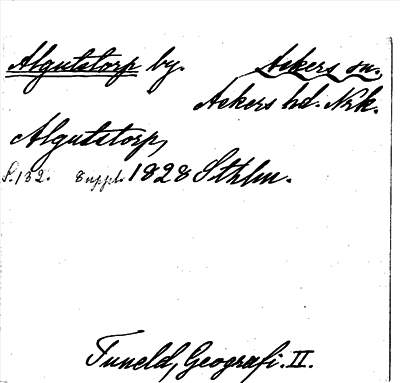 Algutstorp by. Askers sn.
Askers hd. Nrk.
Algutstorp,
S. 132. Suppl. 1828 Sthlm.
Tuneld, Geografi. II.